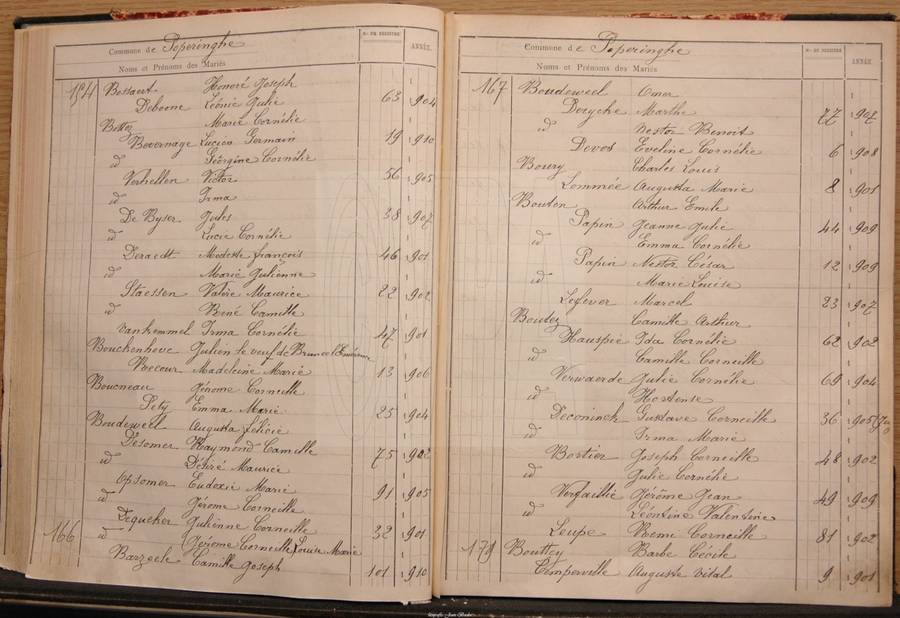 Commune de Poperinghe
Noms et Prénoms des Mariés
Nos DU REGISTRE
ANNÉE.
154 Bossaert Honoré Joseph
Deboone Léonie Julie 63 904
Bottez Marie Cornélie
Bevernage Lucien Germain 19 910
id Géorgine Cornélie
Verhellen Victor 56 905
id Irma
De Byser Jules 38 907
id Lucie Cornélie
Deraedt Modeste françois 46 901
id Marie Julienne
Staessen Valère Maurice 22 902
id René Camille
Vanhemmel Irma Cornélie 47 901
Bouckenhove Julien le veuf de Bruneel
Becour Madeleine Marie 13 906
Boucneau Jérome Corneille
Pety Emma Marie 25 904
Boudeweel Augusta félicie
Desomer Raymond Camille 75 902
id Désiré Maurice
Opsomer Eudoxie Marie 91 905
id Jérome Corneille
Dequeker Julienne Corneille 32 901
166 id Jérome Corneille Louise Marie
Barzeele Camille Joseph 101 910
Commune de Poperinghe
Noms et Prénoms des Mariés
Nos DU REGISTRE
ANNÉE.
167 Boudeweel Omer
Deryche Marthe 77 907
id Nestor Benoit
Devos Eveline Cornélie 6 908
Boury Charles Louis
Lommée Augusta Marie 8 901
Bouton Arthur Emile
Papin Jeanne Julie 44 909
id Emma Cornélie
Papin Nestor César 12 909
id Marie Louise
Lefever Marcel 23 907
Boutez Camille Arthur
Hauspie Ida Cornélie 62 902
id Camille Corneille
Verwaerde Julie Cornélie 69 904
id Hortense
Deconinck Gustave Corneille 36 905
id Irma Marie
Bortier Joseph Corneille 48 902
id Julie Cornélie
Verfaillie Jérôme Jean 49 909
id Léontine Valentine
Leupe Remi Corneille 81 902
179 Bouttey Barbe Cécile
Cimperville Auguste Vital 9 901